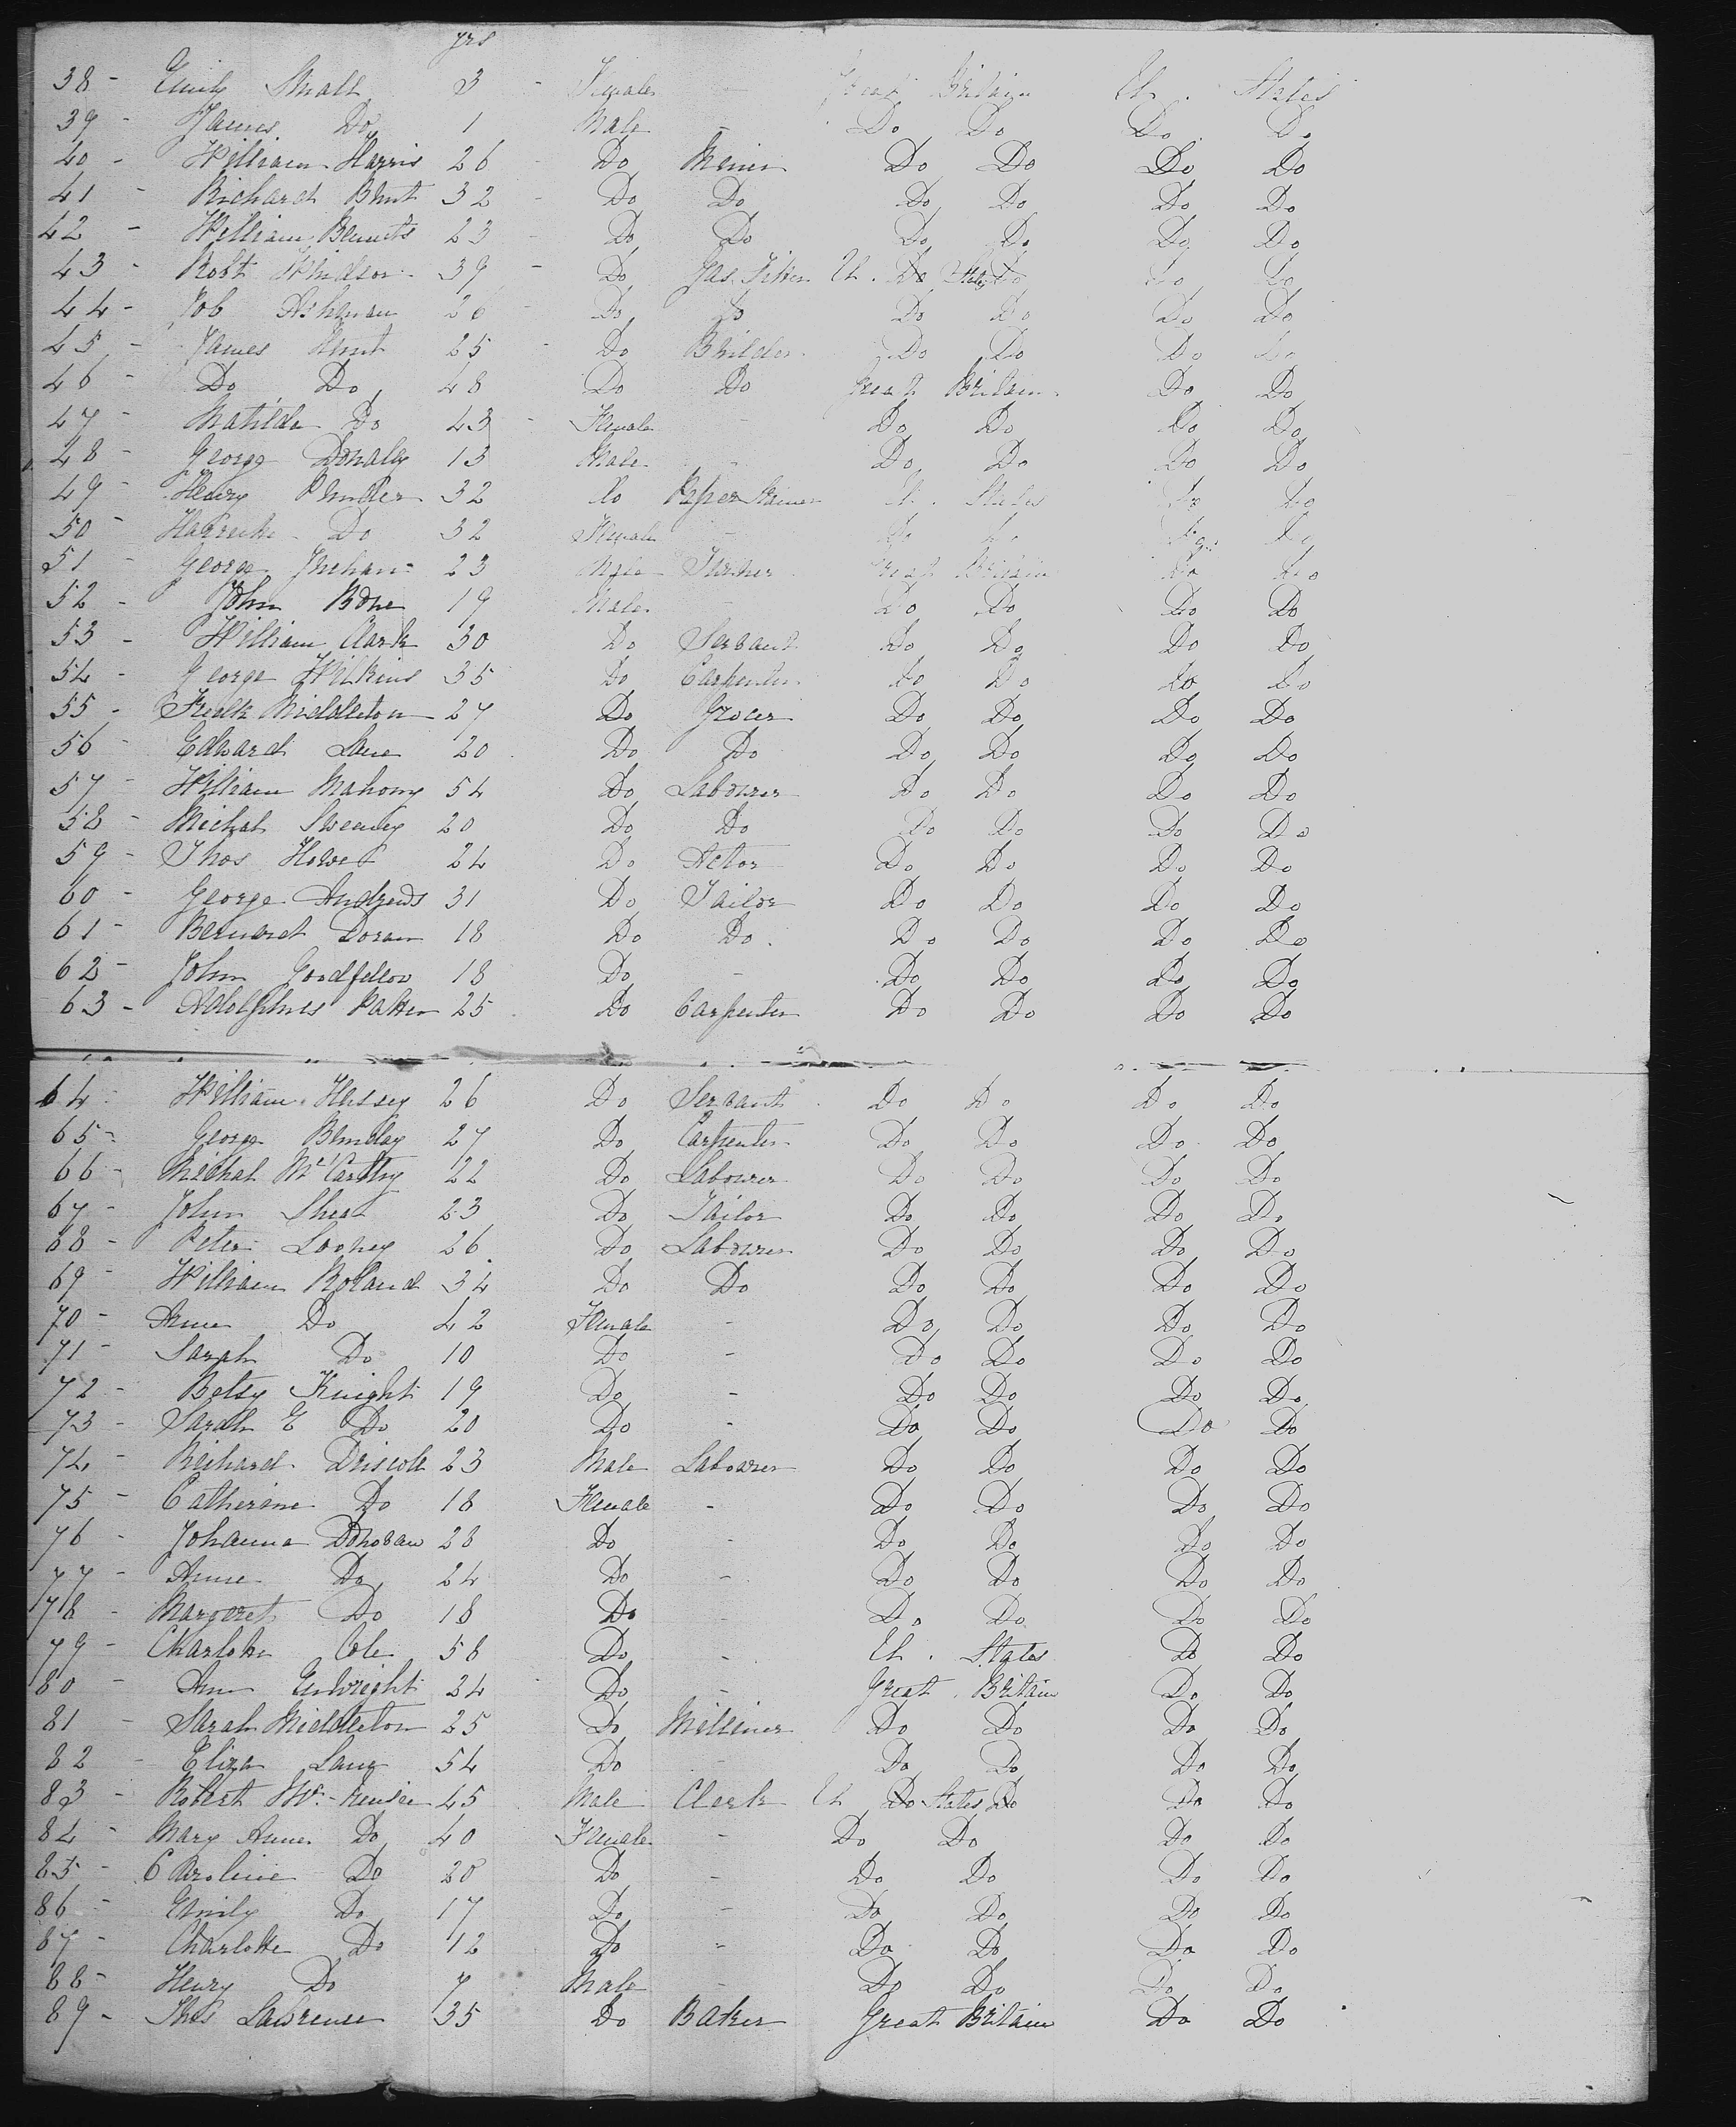 yrs
38 - Emily Small 3 - Female - Great Britain U. States
39 - James Do 1 Male - Do Do Do Do
40 - William Harris 26 - Do Miner Do Do Do Do
41 - Richard Blunt 32 - Do Do Do Do Do Do
42 - William 23 - Do Do Do Do Do Do
43 - Robt Windsor 39 - Do Gas Fitter U. Do States Do Do Do
44 - Job Ashman 26 - Do Do Do Do Do Do
45 - James Hunt 25 - Do Builder Do Do Do Do
46 - Do Do 48 Do Do Great Britain Do Do
47 - Matilda Do 43 - Female - Do Do Do Do
48 - George Donaly 13 Male - Do Do Do Do
49 - Henry 32 Do Paper Stainer U. States Do Do
50 - Do 32 Female - Do Do Do Do
51 - George 23 Male Great Britain Do Do
52 - John Bone 19 Male - Do Do Do Do
53 - William Clark 30 Do Servant Do Do Do Do
54 - George Wilkins 35 Do Carpenter Do Do Do Do
55 - Fredk Middleton 27 Do Grocer Do Do Do Do
56 - Edward Lane 20 Do Do Do Do Do Do
57 - William Mahony 54 Do Labourer Do Do Do Do
58 - Michal Sweeney 20 Do Do Do Do Do Do
59 - Thos Howe 24 Do Actor Do Do Do Do
60 - George Andrews 31 Do Tailor Do Do Do Do
61 - Bernard Doran 18 Do Do Do Do Do Do
62 - John Goodfellow 18 Do - Do Do Do Do
63 - Adolphus Patten 25 Do Carpenter Do Do Do Do
64 - William Hussey 26 Do Servant Do Do Do Do
65 - George 27 Do Carpenter Do Do Do Do
66 - Michal McCarthy 22 Do Labourer Do Do Do Do
67 - John Shea 23 Do Tailor Do Do Do Do
68 - Peter Looney 26 Do Labourer Do Do Do Do
69 - William Boland 34 Do Do Do Do Do Do
70 - Anne Do 42 Female - Do Do Do Do
71 - Sarah Do 10 Do - Do Do Do Do
72 - Betsy Knight 19 Do - Do Do Do Do
73 - Sarah E Do 20 Do - Do Do Do Do
74 - Richard Driscole 23 Male Labourer Do Do Do Do
75 - Catherine Do 18 Female - Do Do Do Do
76 - Johanna Donovan 28 Do - Do Do Do Do
77 - Anne Do 24 Do - Do Do Do Do
78 - Margaret Do 18 Do - Do Do Do Do
79 - Charlotte Cole 58 Do - U. States Do Do
80 - Ann Enwright 24 Do - Great Britain Do Do
81 - Sarah Middleton 25 Do Milliner Do Do Do Do
82 - Eliza Lang 54 Do - Do Do Do Do
83 - Robert 45 Male Clerk U Do States Do Do Do
84 - Mary Anne Do 40 Female - Do Do Do Do
85 - Caroline Do 20 Do - Do Do Do Do
86 - Emily Do 17 Do - Do Do Do Do
87 - Charlotte Do 12 Do - Do Do Do Do
88 - Henry Do 7 Male - Do Do Do Do
89 - Thos Lawrence 35 Do Baker Great Britain Do Do